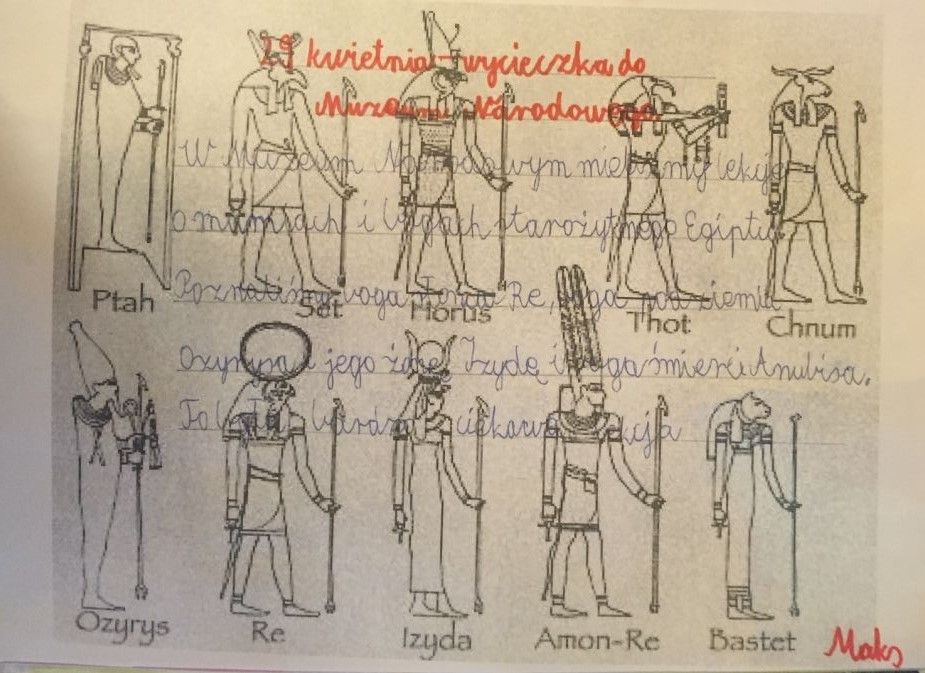 29 kwietnia - wycieczka do
Muzeum Narodowego
W Muzeum Narodowym mieliśmy lekcję
o mumiach i bogach starożytnego Egiptu.
Poznaliśmy boga słońca Re, boga podziemia
Ozyrysa i jego żonę Izydę i boga śmierci Anubisa.
To była bardzo ciekawa lekcja
Ptah Set Horus Thot Chnum
Ozyrys Re Izyda Amon-Re Bastet
Maks